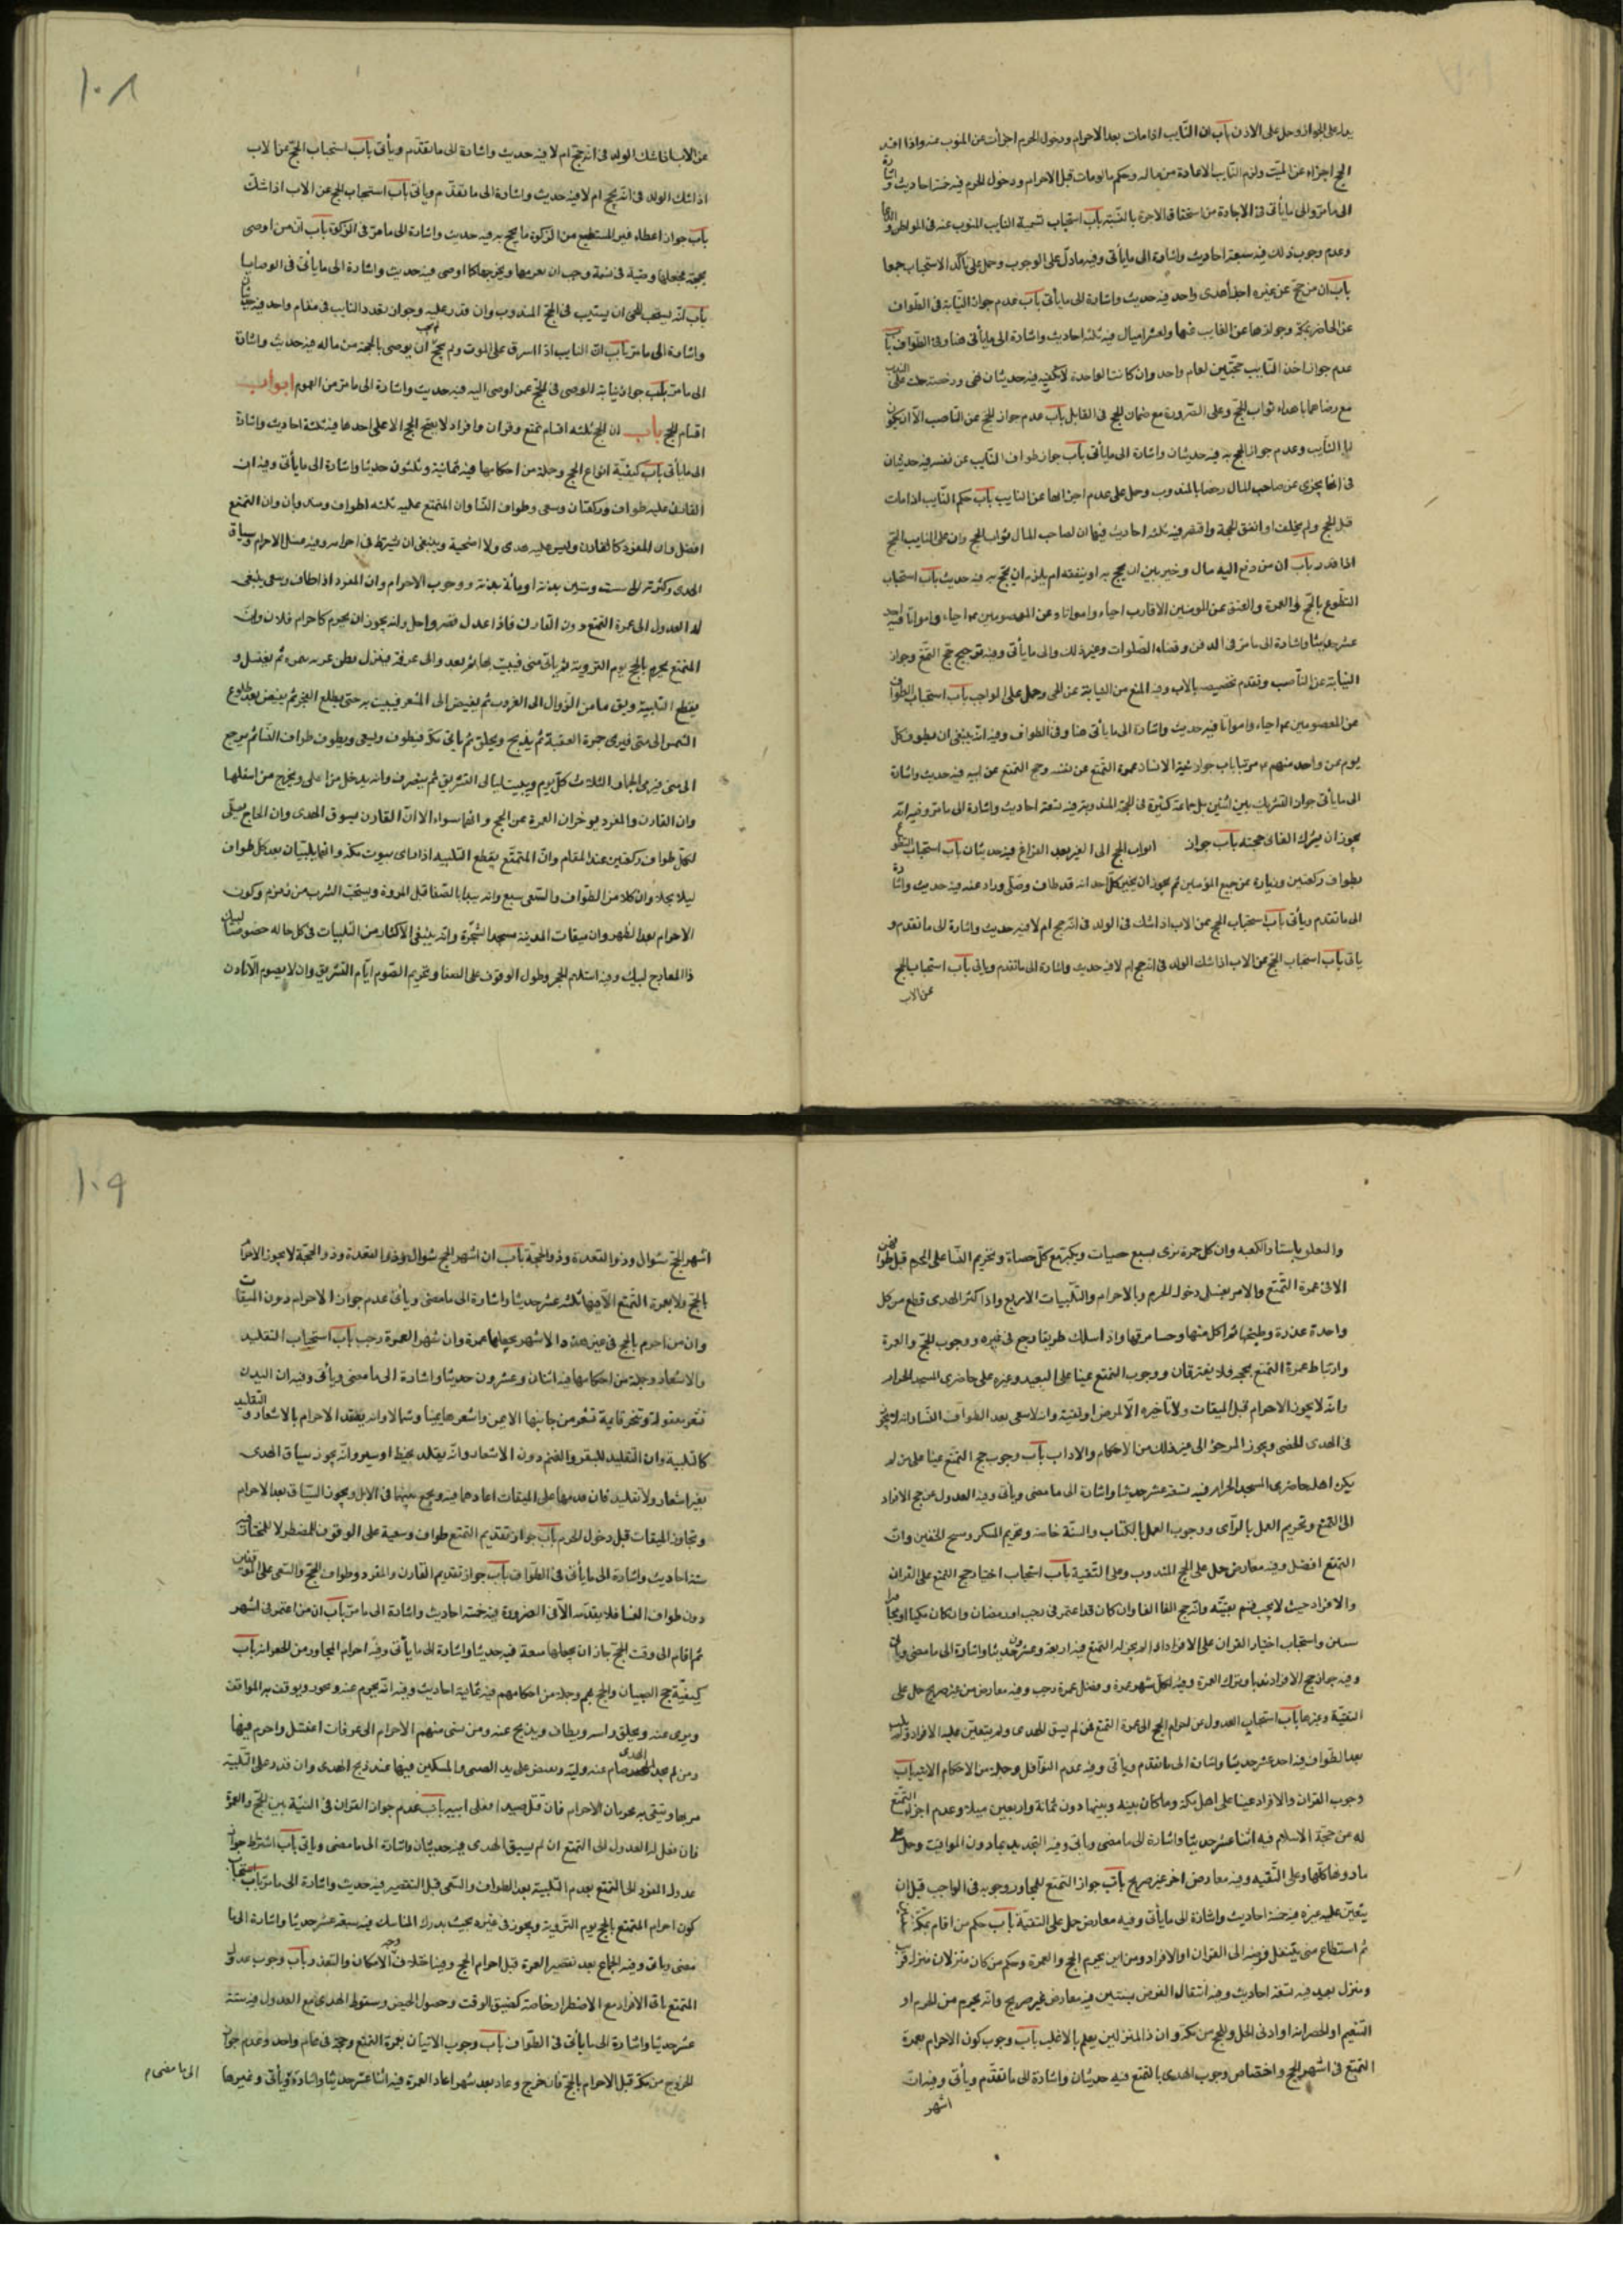 يدل على الجواز وحمل على الاذن باب ان النايب اذا مات بعد الاحرام ودخول الحرم اجزأت عن المنوب عنه واذا افسد
الحج اجزاه عن الميت ولزم النايب الاعادة من ماله وحكم ما لو مات قبل الاحرام ودخول الحرم فيه خمسة احاديث واشارة
الى ما مر والى ما يأتى فى الاجارة من استحقاق الاجرة بالنسبة باب استحباب تسمية النايب المنوب عنه فى المواطن والدعا
وعدم وجوب ذلك فيه سبعة احاديث واشارة الى ما يأتى وفيه ما دل على الوجوب وحمل على تأكد الاستحباب جمعا
باب ان من حج عن غيره اجزأ هدى واحد فيه حديث واشارة الى ما يأتى باب عدم جواز النيابة فى الطواف
عن الحاضر بمكة وجوازها عن الغايب عنها ولعشر اميال فيه ثلثة احاديث واشارة الى ما يأتى هنا وفى الطواف باب
عدم جواز اخذ النايب حجتين لعام واحد وان كانت الواحدة لا تكفيه فيه حديثان نهى ورخصة حملت على الندب
مع رضاهما باهداء ثواب الحج وعلى الضرورة مع ضمان الحج فى القابل باب عدم جواز الحج عن الناصب الا ان يكون
ابا النايب وعدم جواز الحج به فيه حديثان واشارة الى ما يأتى باب جواز طواف النايب عن نفسه فيه حديثان
فى انها يجزى عن صاحب المال رضا بالمندوب وحمل على عدم اجزائها عن النايب باب حكم النايب اذا مات
قبل الحج ولم يخلف او انفق الحجة وافتقر فيه ثلثة احاديث فيها ان لصاحب المال ثواب الحج وان على النايب الحج
اذا قدر باب ان من دفع اليه مال وخير بين ان يحج به او ينفقه لم يلزمه ان يحج به فيه حديث باب استحباب
التطوع بالحج والعمرة والعتق عن المومنين الاقارب احياء وامواتا وعن المعصومين ع احياء وامواتا فيه احد
عشر حديثا واشارة الى ما مر فى الدفن وقضاء الصلوات وغير ذلك والى ما يأتى وفيه ترجيح حج التمتع وجواز
النيابة عن الناصب وتقدم تخصيصه بالاب وفيه المنع من النيابة عن الحى وحمل على الواجب باب استحباب الطواف
عن المعصومين ع احياء وامواتا فيه حديث واشارة الى ما يأتى هنا وفى الطواف وفيه انه ينبغى ان يطوف كل
يوم عن واحد منهم ع مرتبا باب جواز نية الانسان عمرة التمتع عن نفسه وحج التمتع عن ابيه فيه حديث واشارة
الى ما يأتى جواز التشريك بين اثنين بل جماعة كثيرة فى الحجة المندوبة فيه تسعة احاديث واشارة الى ما مر وفيه انه
يجوز ان يشرك الفا فى حجته باب جواز اثواب الحج الى الغير بعد الفراغ فيه حديثان باب استحباب التطوع
بطواف ركعتين وزيارة عن جميع المؤمنين ثم يجوز ان يخبر كل احد انه قد طاف وصلى وزار عنه فيه حديث واشارة
الى ما تقدم ويأتى باب استحباب الحج عن الاب اذا شك فى الولد فى انه حج ام لا فيه حديث واشارة الى ما تقدم و
يأتى باب استحباب الحج عن الاب اذا شك الولد فى انه حج ام لا فيه حديث واشارة الى ما تقدم ويأتى باب استحباب الحج
عن الاب
١٠٨
عن الاب اذا شك الولد فى انه حج ام لا فيه حديث واشارة الى ما تقدم ويأتى باب استحباب الحج عن الاب
اذا شك الولد فى انه حج ام لا فيه حديث واشارة الى ما تقدم ويأتى باب استحباب الحج عن الاب اذا شك
باب جواز اعطاء غير المستطيع من الزكوة ما يحج به فيه حديث واشارة الى ما مر فى الزكوة باب ان من اوصى
بحجة فجعلها وصية فى نسمة وجب ان يغرمها ويخرجها كما اوصى فيه حديث واشارة الى ما يأتى فى الوصايا
باب انه يستحب للحى ان يستنيب فى الحج المندوب وان قدر عليه وجواز تعدد النايب فى مقام واحد فيه حديثان
واشارة الى ما مر باب ان النايب اذا اشرف على الموت ولم يحج وجب ان يوصى بالحجة من ماله فيه حديث واشارة
الى ما مر باب جواز نيابة الوصى فى الحج عن اوصى اليه فيه حديث واشارة الى ما مر من العموم ابواب
اقسام الحج باب ان الحج ثلثة اقسام تمتع وقران وافراد لا يصح الحج الا على احدها فيه ثلثة احاديث واشارة
الى ما يأتى باب كيفية انواع الحج وجملة من احكامها فيه ثمانية وثلثون حديثا واشارة الى ما يأتى وفيه ان
القارن عليه طواف وركعتان وسعى وطواف النسا وان المتمتع عليه ثلثة اطواف وسعيان وان التمتع
افضل وان المفرد كالقارن وليس عليه هدى ولا اضحية وينبغى ان يشترط فى احرامه وفيه غسل الاحرام وسياق
الهدى وكثرته الى ست وستين بدنة او مائة بدنة ووجوب الاحرام وان المفرد اذا طاف وسعى ينبغى
له العدول الى عمرة التمتع دون القارن فاذا عدل قصر واحل وانه يجوز ان يحرم كاحرام فلان وان
المتمتع يحرم بالحج يوم التروية ثم يأتى منى فيبيت بها ثم يغدو الى عرفة فينزل بطن عرنه بنمره ثم يغتسل و
يقطع التلبية ويقف بها من الزوال الى الغروب ثم يفيض الى المشعر فيبيت به حتى يطلع الفجر ثم يفيض بعد طلوع
الشمس الى منى فيرمى جمرة العقبة ثم يذبح ويحلق ثم يأتى مكة فيطوف ويسعى ويطوف طواف النسا ثم يرجع
الى منى فيرمى الجمار الثلاث كل يوم ويبيت ليالى التشريق ثم ينصرف وانه يدخل من اعلى ويخرج من اسفلها
وان القارن والمفرد يوخران العمرة عن الحج وانهما سواء الا ان القارن يسوق الهدى وان الحاج يصلى
لكل طواف ركعتين عند المقام وان المتمتع يقطع التلبيه اذا راى بيوت مكة وانهما يلبيان بعد كل طواف
ليلا يحلا وان كلا من الطواف والسعى سبع وانه يبدا بالصفا قبل المروة ويستحب الشرب من زمزم وكون
الاحرام بعد الظهر وان ميقات المدينة مسجد الشجرة وانه ينبغى الاكثار من التلبيات فى كل حاله خصوصا لبيك
ذا المعارج لبيك وفيه استلام الحجر وطول الوقوف على الصفا وتحريم الصوم ايام التشريق وان لا يصوم الا ان اذن
والتعلق باستار الكعبه وان كل جمرة ترمى بسبع حصيات ويكبر مع كل حصاة وتحريم النسا على المحرم قبل طوافهن
الا فى عمرة التمتع والامر بغسل دخول الحرم وبالاحرام والتلبيات الاربع واذا كثر الهدى قطع من كل
واحدة عذرة وطبخها ثم اكل منها وحسا مرقها واذا سلك طريقا رجع فى غيره ووجوب الحج والعمرة
وارتباط عمرة التمتع بحجه فلا يفترقان ووجوب التمتع عينا على البعيد وغيره على حاضرى المسجد الحرام
وانه لا يجوز الاحرام قبل الميقات ولا تأخيره الا لمرض او تقية وانه لا سعى بعد الطواف النسا وانه لا يجوز
فى الهدى الخصى ويجوز المرجؤ الى غير ذلك من الاحكام والاداب باب وجوب حج التمتع عينا على من لم
يكن اهله حاضرى المسجد الحرام فيه تسعة عشر حديثا واشارة الى ما مضى ويأتى وفيه العدول عن حج الافراد
الى التمتع وتحريم العمل بالرأى ووجوب العمل بالكتاب والسنة خاصة وتحريم المسكر ومسح الخفين وان
التمتع افضل وفيه معارض حمل على الحج المندوب وعلى التقية باب استحباب اختيار حج التمتع على القران
والافراد حيث لا يجب قسم بعينه وان حج الفا الفا وان كان قد اعتمر فى رجب او رمضان وان كان مكيا او مجاورا
سنين واستحباب اختيار القران على الافراد اذا لم يجز له التمتع فيه اربعة وعشرون حديثا واشارة الى ما مضى ويأتى
وفيه جواز حج الافراد ندبا وترك العمرة وفيه لكل شهر عمرة وفضل عمرة رجب وفيه معارض من غير صريح حمل على
التقية وغيرها باب استحباب العدول عن احرام الحج الى عمرة التمتع لمن لم يسق الهدى ولم يتعين عليه الافراد ولم يلب
بعد الطواف فيه احد عشر حديثا واشارة الى ما تقدم ويأتى وفيه عدم النوافل وجملة من الاحكام الاتيه باب
وجوب القران والافراد عينا على اهل مكة وما كان بينه وبينها دون ثمانية واربعين ميلا وعدم اجزاء التمتع
له من حجة الاسلام فيه اثنا عشر حديثا واشارة الى ما مضى ويأتى وفيه التحديد بما دون المواقيت وحمل على
ما دونها كلها وعلى التقيه وفيه معارض اخر غير صريح باب جواز التمتع للمجاور ووجوبه فى الواجب قبل ان
يتعين عليه غيره فيه خمسة احاديث واشارة الى ما يأتى وفيه معارض حمل على التقية باب حكم من اقام بمكة
ثم استطاع متى ينتقل فرضه الى القران او الافراد ومن اين يحرم الحج والعمرة وحكم من كان منزلان منزل قريب
ومنزل بعيد فيه تسعة احاديث وفيه انتقال الفرض بسنتين فيه معارض غير صريح وانه يحرم من الحرم او
التنعيم او الجعرانه او ادنى الحل وللحج من مكة وان ذا المنزلين يعمل بالاغلب باب وجوب كون الاحرام بعمرة
التمتع فى اشهر الحج واختصاص وجوب الهدى بالتمتع فيه حديثان واشارة الى ما تقدم ويأتى وفيه ان
اشهر
١٠٩
اشهر الحج شوال وذو القعدة وذو الحجة باب ان اشهر الحج شوال وذو القعدة وذو الحجة لا يجوز الاحرام
بالحج ولا بعمرة التمتع الا فيها ثلثه عشر حديثا واشارة الى ما مضى ويأتى عدم جواز الاحرام دون الميقات
وان من احرم بالحج فى غير هذه الاشهر يجعلها عمرة وان شهر العمرة رجب باب استحباب التقليد
والاشعار وجملة من احكامها فيه اثنان وعشرون حديثا واشارة الى ما مضى ويأتى وفيه ان البدن
تشعر معقولة وتنحر قايمة تشعر من جانبها الايمن واشعرها يمينا وشمالا وانه يعقد الاحرام بالاشعار والتقليد
كالتلبية وان التقليد للبقر والغنم دون الاشعار وانه يقلد بخيط او سير وانه يجوز سياق الهدى
بغير اشعار ولا تقليد فان قدمها على الميقات اعادهما فيه ويجمع بينهما فى الابل ويجوز السياق بعد الاحرام
وتجاوز الميقات قبل دخول الحرم باب جواز تقديم التمتع طواف وسعيه على الوقوف للمضطر لا للمختار فيه
ستة احاديث واشارة الى ما يأتى فى الطواف باب جواز تقديم القارن والمفرد وطواف الحج والسعى على الموقفين
دون طواف النسا فلا يتقدم الا فى الضرورة فيه خمسة احاديث واشارة الى ما مر باب ان من اعتمر فى اشهر
ثم اقام الى وقت الحج جاز ان يجعلها متعة فيه حديثا واشارة الى ما يأتى وفيه احرام المجاور من الجعرانه باب
كيفية حج الصبيان والحج بهم وجملة من احكامهم فيه ثمانية احاديث وفيه انه يحرم عنه ويجرد ويوقف به المواقف
ويرمى عنه ويحلق راسه ويطاف ويذبح عنه ومن نسى منهم الاحرام الى عرفات اغتسل واحرم فيها
ومن لم يجد الهدى صام عنه وليه ويقبض على يد الصبى والمسكين فيها عند ذبح الهدى وان قدر على التلبية
امر بها ويتقى به محرمات الاحرام فان قتل صيدا فعلى ابيه باب عدم جواز القران فى النية بين الحج والعمرة
فان فعل له العدول الى التمتع ان لم يسق الهدى فيه حديثان واشارة الى ما مضى ويأتى باب اشتراط جواز
عدول المفرد الى التمتع بعدم التلبية بعد الطواف والسعى قبل التقصير فيه حديث واشارة الى ما مر باب استحباب
كون احرام المتمتع بالحج يوم التروية ويجوز فى غيره بحيث يدرك المناسك فيه سبعة عشر حديثا واشارة الى ما
مضى ويأتى وفيه الجماع بعد تقصير العمرة قبل احرام الحج وفيه اختلاف وجه الامكان والتعذر باب وجوب عدول
المتمتع الى الافراد مع الاضطرار خاصة كضيق الوقت وحصول الحيض وسقوط الهدى مع العدول فيه ستة
عشر حديثا واشارة الى ما يأتى فى الطواف باب وجوب الاتيان بعمرة التمتع وحجه فى عام واحد وعدم جواز
الخروج من مكة قبل الاحرام بالحج فان خرج وعاد بعد شهر اعاد العمرة فيه اثنا عشر حديثا واشارة ويأتى وغيرها
الى ما مضى